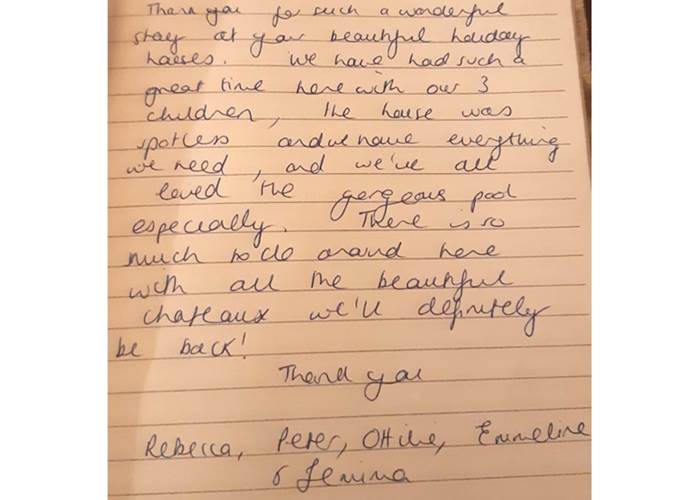 Thank you for such a wonderful
stay at your beautiful holiday
houses. We have had such a
great time here with our 3
children, the house was
spotless and we have everything
we need, and we've all
loved the gorgeous pool
especially. There is so
much to do around here
with all the beautiful
chateaux we'll definitely
be back!
Thank you
Rebecca, Peter, Ottilie, Emmeline
& Jemima